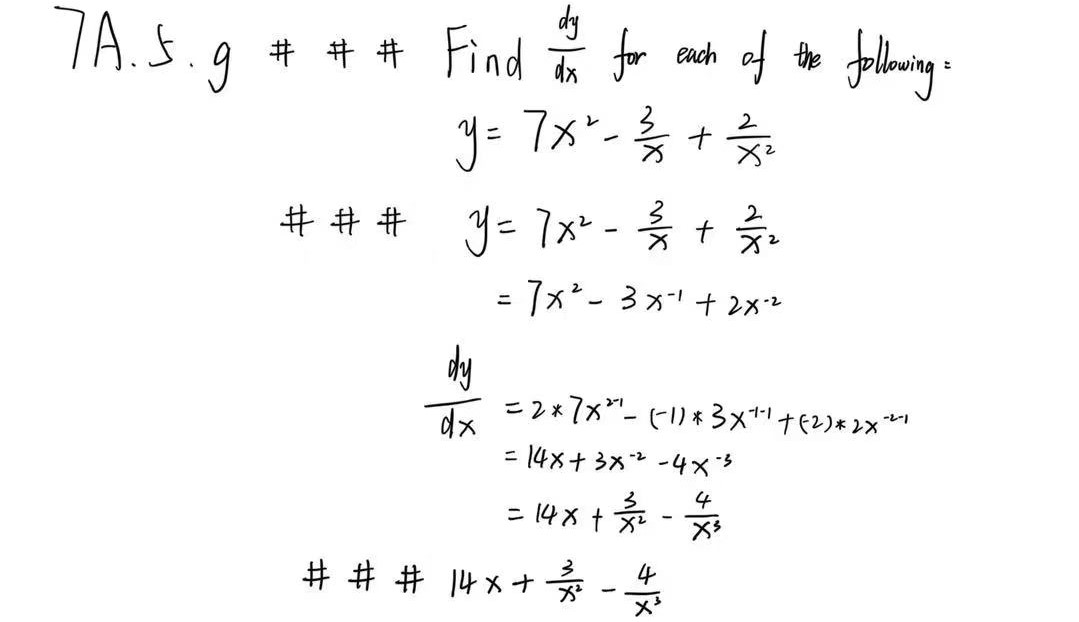 7A.5.g # # # Find dy/dx for each of the following:
y = 7x² - 3/x + 2/x²
# # # y = 7x² - 3/x + 2/x²
= 7x² - 3x⁻¹ + 2x⁻²
dy/dx = 2*7x²⁻¹ - (-1)*3x⁻¹⁻¹ + (-2)*2x⁻²⁻¹
= 14x + 3x⁻² - 4x⁻³
= 14x + 3/x² - 4/x³
# # # 14x + 3/x² - 4/x³